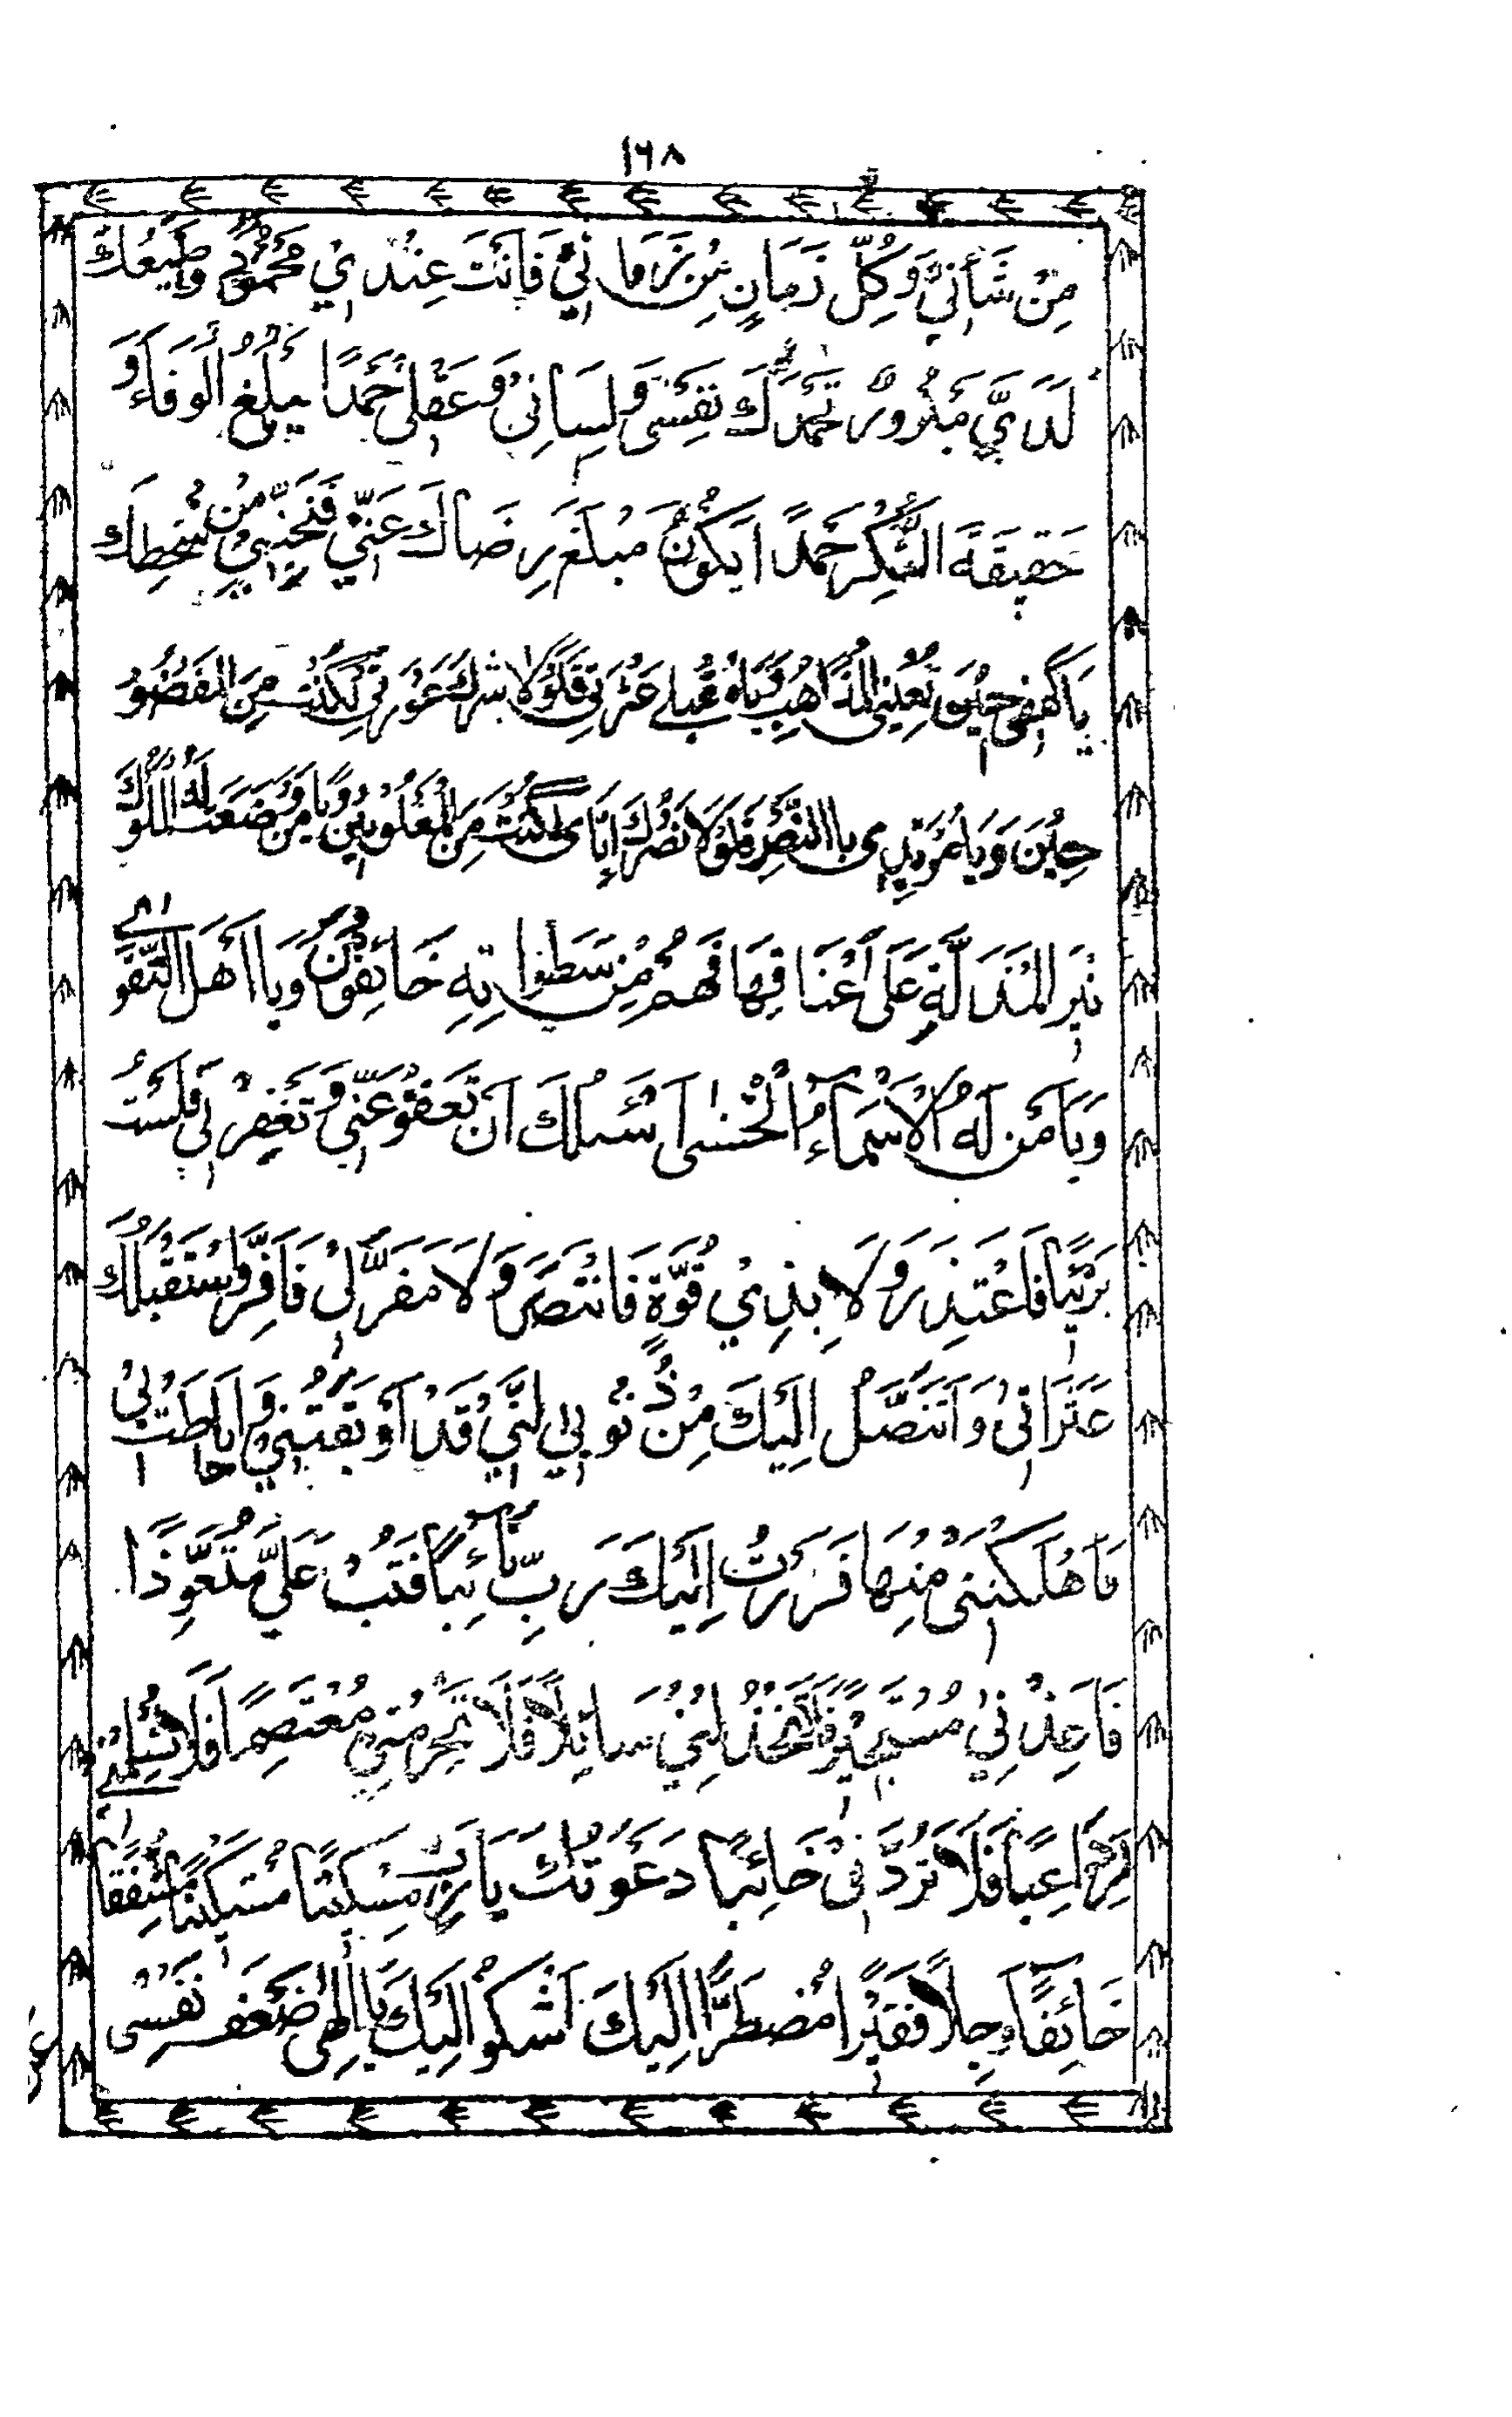 ١٦٨
مِنْ شَأْنِيْ وَكُلِّ زَمَانٍ مِنْ زَمَانِيْ فَاَنْتَ عِنْدِيْ مَحْمُوْدٌ وَصَنِيْعُكَ
لَدَيَّ مَبْرُوْرٌ تَحْمَدُكَ نَفْسِىْ وَلِسَانِىْ وَعَقْلِىْ حَمْدًا يَبْلُغُ الْوَفَاءَ وَ
حَقِيْقَةَ الشُّكْرِ حَمْدًا يَكُوْنُ مَبْلَغَ رِضَاكَ عَنِّيْ فَنَجِّنِيْ مِنْ سُخْطِكَ
يَا كَهْفِىْ حِيْنَ تُعْيِيْنِى الْمَذَاهِبُ وَيَا مُقِيْلِىْ عَثْرَتِىْ فَلَوْلَا سَتْرُكَ عَوْرَتِىْ لَكُنْتُ مِنَ الْمَفْضُوْ
حِيْنَ وَيَا مُؤَيِّدِىْ بِالنَّصْرِ فَلَوْلَا نَصْرُكَ اِيَّاىَ لَكُنْتُ مِنَ الْمَغْلُوْبِيْنَ وَيَا مَنْ وَضَعَتْ لَهُ الْمُلُوْكُ
نِيْرَ الْمَذَلَّةِ عَلٰى اَعْنَاقِهَا فَهُمْ مِنْ سَطَوَاتِهِ خَائِفُوْنَ وَيَا اَهْلَ التَّقْوٰى
وَيَا مَنْ لَهُ الْاَسْمَاءُ الْحُسْنٰى اَسْئَلُكَ اَنْ تَعْفُوَ عَنِّيْ وَتَغْفِرَ لِىْ فَلَسْتُ
بَرِيْئًا فَاَعْتَذِرَ وَلَا بِذِيْ قُوَّةٍ فَاَنْتَصِرَ وَلَا مَفَرَّ لِىْ فَاَفِرَّ وَاَسْتَقِيْلُكَ
عَثَرَاتِىْ وَاَتَنَصَّلُ اِلَيْكَ مِنْ ذُنُوْبِيْ الَّتِيْ قَدْ اَوْبَقَتْنِيْ وَاَحَاطَتْ بِىْ
فَاَهْلَكَتْنِىْ مِنْهَا فَرَرْتُ اِلَيْكَ رَبِّ تَائِبًا فَتُبْ عَلَيَّ مُتَعَوِّذًا
فَاَعِذْنِيْ مُسْتَجِيْرًا فَلَا تَخْذُلْنِيْ سَائِلًا فَلَا تَحْرِمْنِيْ مُعْتَصِمًا فَلَا تُسْلِمْنِىْ
دَاعِيًا فَلَا تَرُدَّنِىْ خَائِبًا دَعَوْتُكَ يَا رَبِّ مِسْكِيْنًا مُسْتَكِيْنًا مُشْفِقًا
خَائِفًا وَجِلًا فَقِيْرًا مُضْطَرًّا اِلَيْكَ اَشْكُوْ اِلَيْكَ يَا اِلٰهِىْ ضَعْفَ نَفْسِىْ